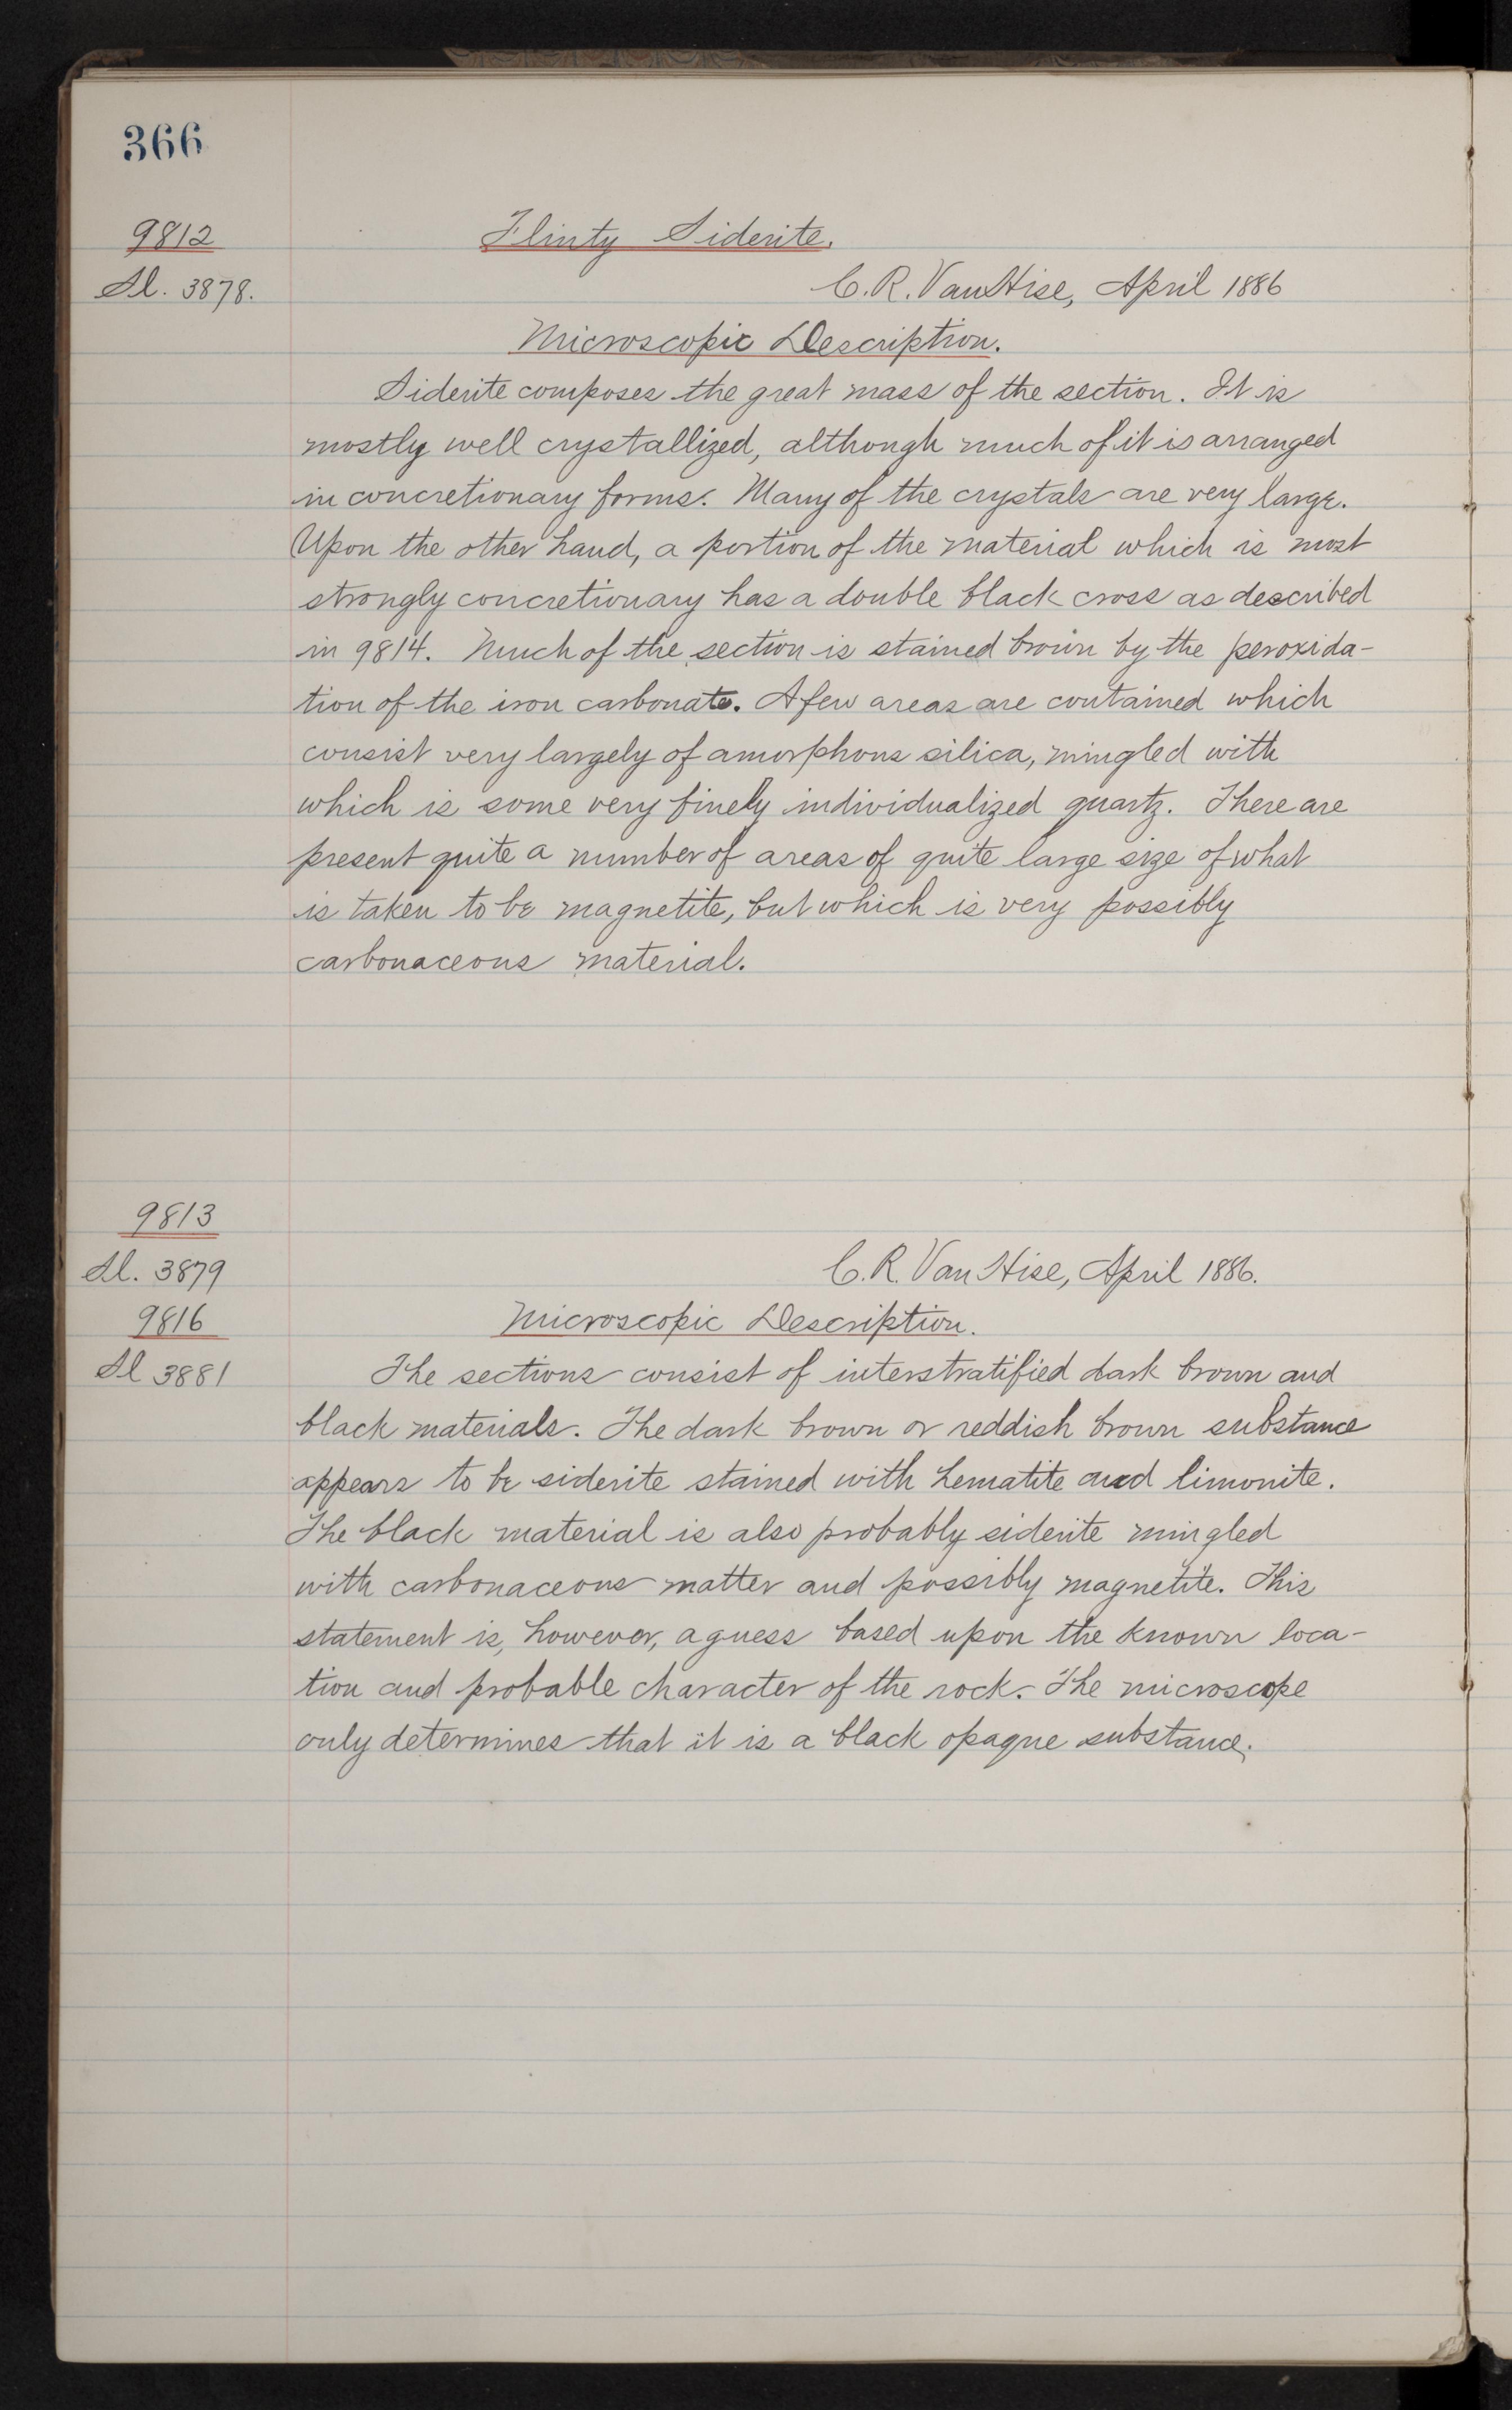 366
9812
Sl. 3878.
Flinty Siderite.
C. R. Van Hise, April 1886
Microscopic Description.
Siderite composes the great mass of the section. It is
mostly well crystallized, although much of it is arranged
in concretionary forms. Many of the crystals are very large.
Upon the other hand, a portion of the material which is most
strongly concretionary has a double black cross as described
in 9814. Much of the section is stained brown by the peroxida-
tion of the iron carbonate. A few areas are contained which
consist very largely of amorphous silica, mingled with
which is some very finely individualized quartz. There are
present quite a number of areas of quite large size of what
is taken to be magnetite, but which is very possibly
carbonaceous material.
9813
Sl. 3879
9816
Sl 3881
C. R. Van Hise, April 1886.
Microscopic Description.
The sections consist of interstratified dark brown and
black materials. The dark brown or reddish brown substance
appears to be siderite stained with hematite and limonite.
The black material is also probably siderite mingled
with carbonaceous matter and possibly magnetite. This
statement is, however, a guess based upon the known loca-
tion and probable character of the rock. The microscope
only determines that it is a black opaque substance.